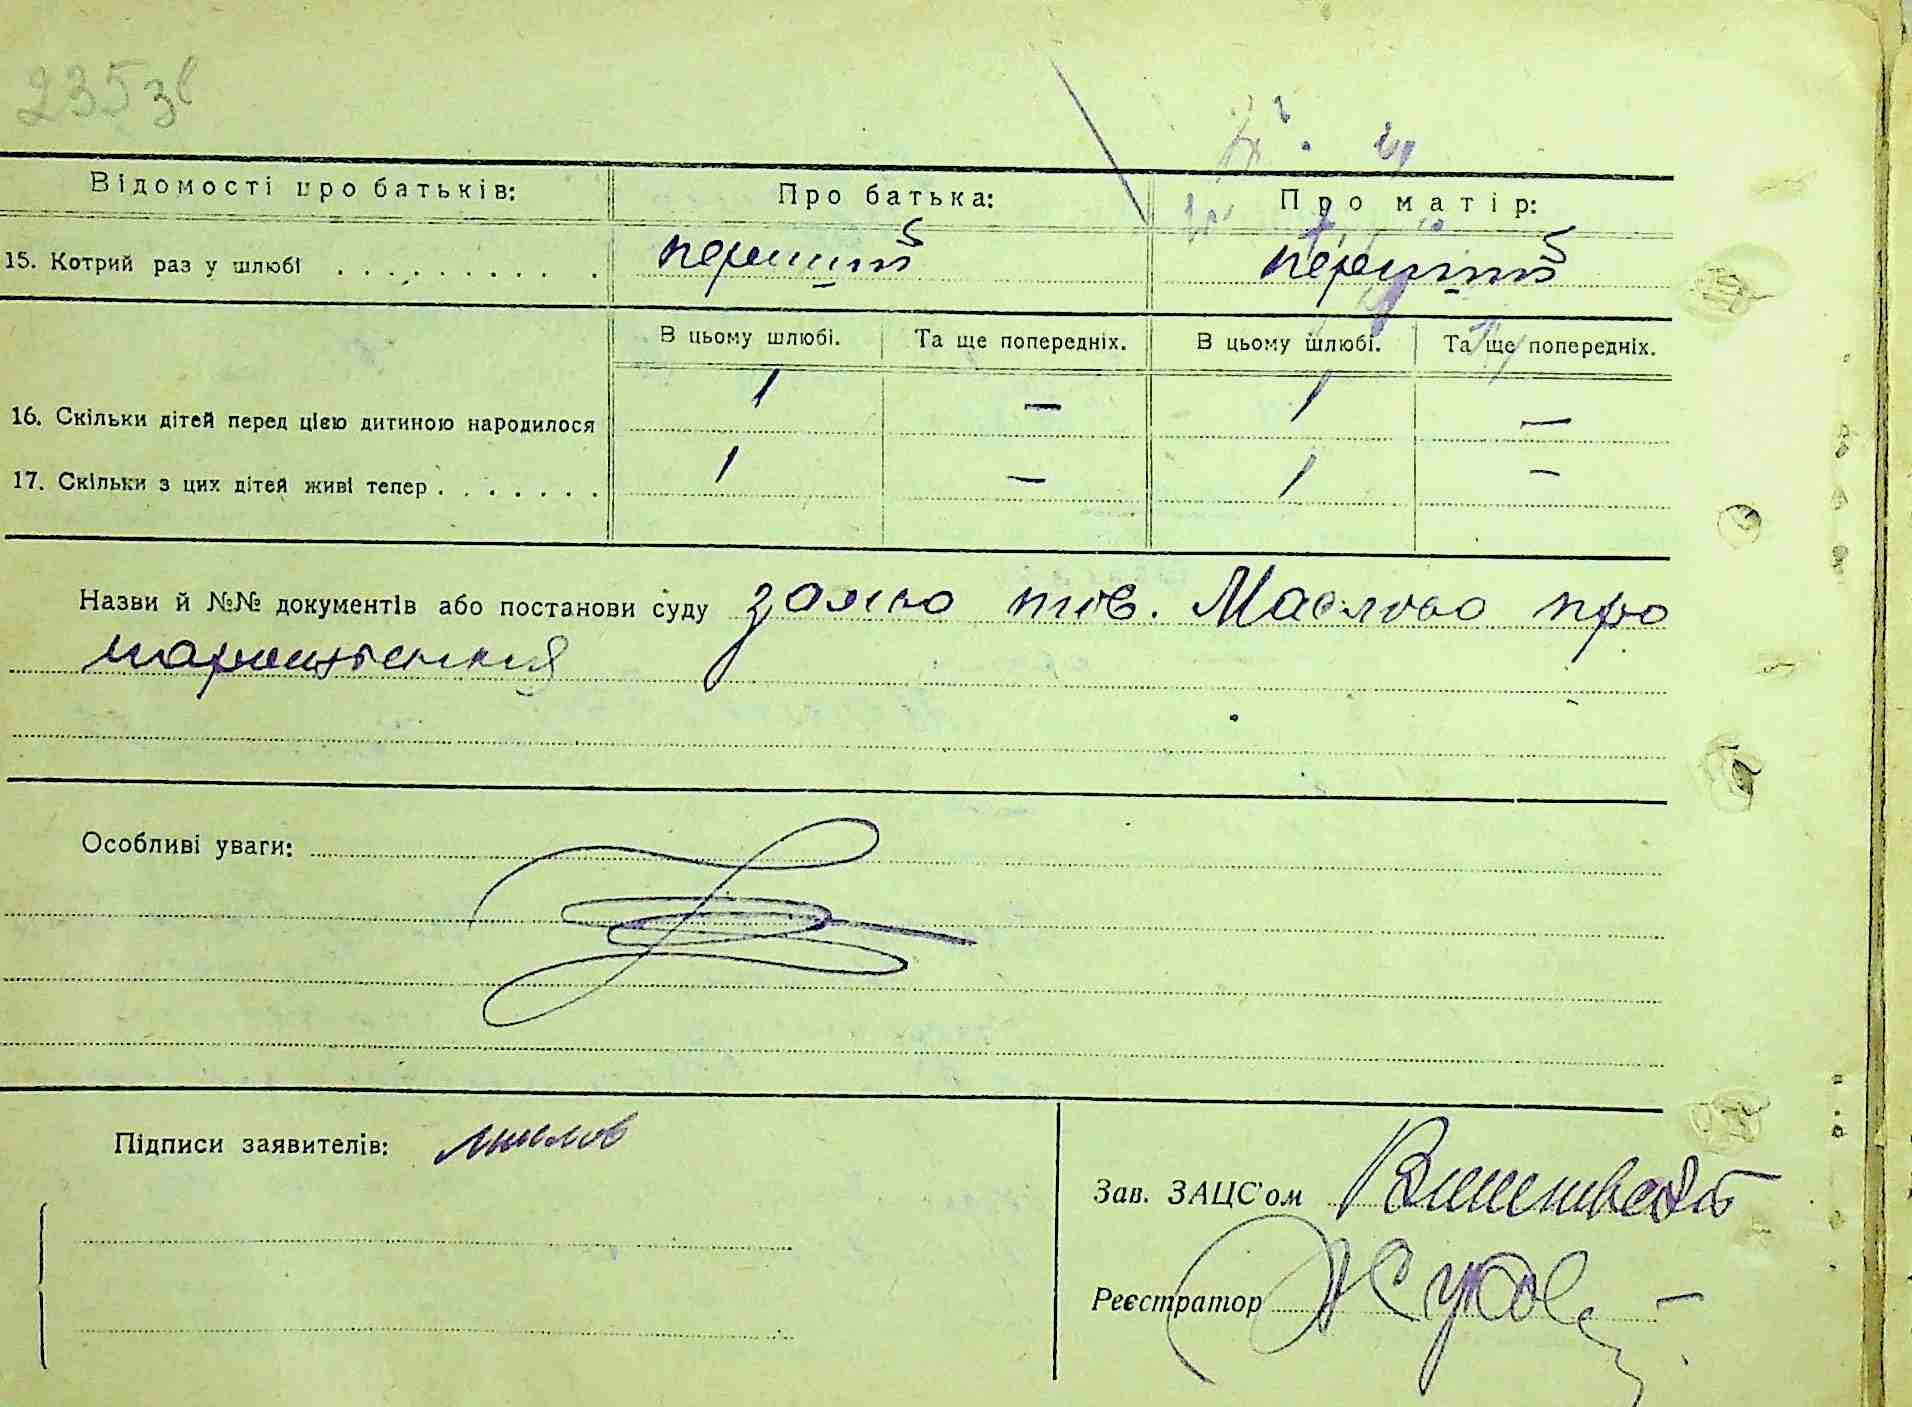 235 зв
Відомості про батьків: Про батька: Про матір:
15. Котрий раз у шлюбі . . . . . . . . . . перший перший
В цьому шлюбі. Та ще попередніх. В цьому шлюбі. Та ще попередніх.
16. Скільки дітей перед цією дитиною народилося 1 — 1 —
17. Скільки з цих дітей живі тепер . . . . . . . 1 — 1 —
Назви й №№ документів або постанови суду тов. про
народження
Особливі уваги:
Підписи заявителів:
Зав. ЗАЦС'ом
Реєстратор